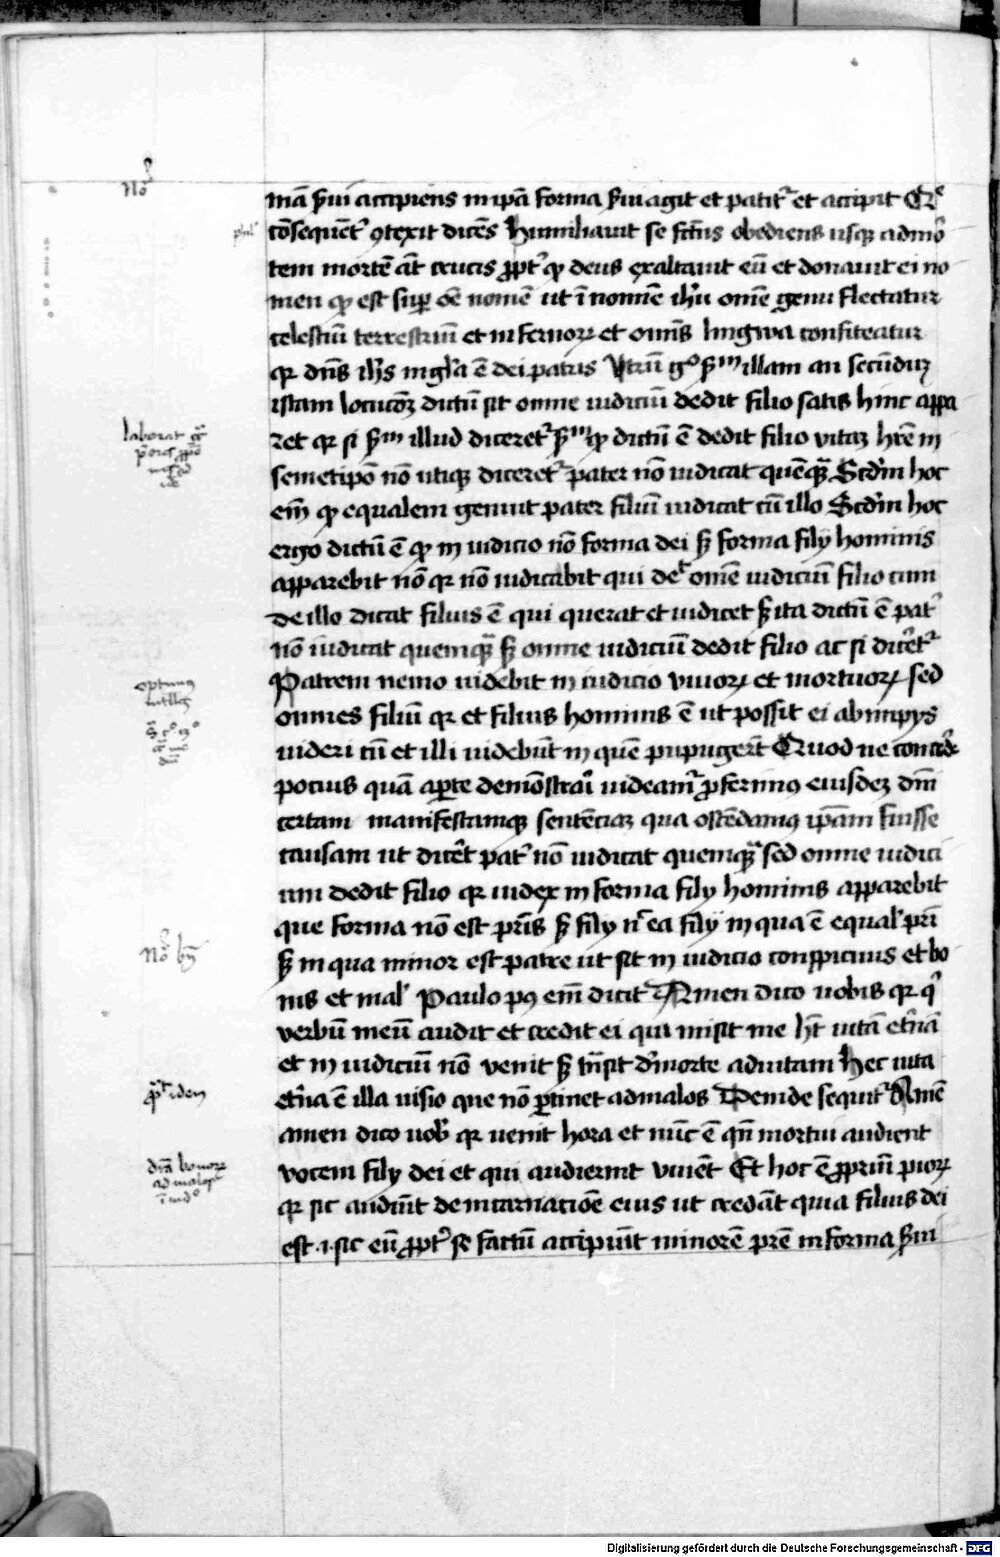 No͞
mā s̄ui accipiens in ip̄a forma s̄ui agit et patit᷑ et accipit Q͛
phil᷑
cōsequēt᷑ ꝯtexit dicēs Humiliavit se fct̄us obediens usqꝫ ad mo᷑
tem mortē aūt crucis ꝓpt᷑ qꝫ deus exaltauit eū et donauit ei no
men qꝫ est suꝑ oē nomē ut ī nomīe ih̄u om̄e genu flectatur
celestiū terrestriū et infernoꝝ et omīs lingwa confiteatur
qꝛ dn̄s ih̄s in gl̄a ē dei patris Vtrū gᵒ s̄ᵐ illam an secūduꝫ
istam locucōꝫ dictū sit omne iudiciū dedit filio satis hinc appa
laborat
ret qꝛ si s̄ᵐ illud diceret᷑ s̄ᵐ qꝫ dictū ē dedit filio vitaꝫ h̄rē in
semetip̄o nō utiqꝫ diceret᷑ pater nō iudicat quēqꝫ̄ Scdm̄ hoc
em̄ qꝫ equalem genuit pater filiū iudicat cū illo Scdm̄ hoc
ergo dictū ē qꝫ in iudicio nō forma dei s̄ forma filÿ hominis
apparebit nō qꝛ nō iudicabit qui deᵗ om̄e iudiciū filio cum
de illo dicat filius ē qui querat et iudicet s̄ ita dictū ē pat᷑
nō iudicat quemqꝫ̄ s̄ omne iudiciū dedit filio ac si dicēt᷑
Patrem nemo uidebit in iudicio vivoꝝ et mortuoꝝ sed
optimus
omnes filiū qꝛ et filius hominis ē ut possit ei ab impÿs
uideri cū et illi uidebūt in quē pupugerūt Quod ne conicē᷑
potius quā aꝑte demōstrai᷑ uideam᷑ ꝓferimꝰ eiusdeꝫ dn̄i
certam manifestamqꝫ sentēciaꝫ qua ostēdamꝰ ip̄am fuisse
causam ut dicēt pat᷑ nō iudicat quemqꝫ̄ sed omne iudici
um dedit filio qꝛ iudex in forma filÿ hominis apparebit
que forma nō est pr̄is s̄ filÿ n᷑ ea filÿ in qua ē equal᷑ pr̄i
No͞ bn̄
s̄ in qua minor est patre ut sit in iudicio conspicuus et bo
nis et mal᷑ Paulo pꝰ em̄ dicit Amen dico uobis qꝛ q᷑
verbū meū audit et credit ei qui misit me h̄t uitā et̄nā
et in iudiciū nō venit s̄ tn̄sit d᷑ morte ad uitam Hec uita
idem
et̄na ē illa uisio que nō ꝑtinet ad malos Deinde sequit᷑ Amē
amen dico uob᷑ qꝛ uenit hora et nūc ē qn̄ mortui audient
dr̄a bonoꝝ
vocem filÿ dei et qui audierint viuēt Et hoc ē ꝓpriū pioꝝ
qꝛ sic audiūt de incarnacōe eius ut credāt quia filius dei
est .i. sic eū ꝓpt᷑ se factū accipiūt minorē pr̄e in forma s̄ui
Digitalisierung gefördert durch die Deutsche Forschungsgemeinschaft - DFG